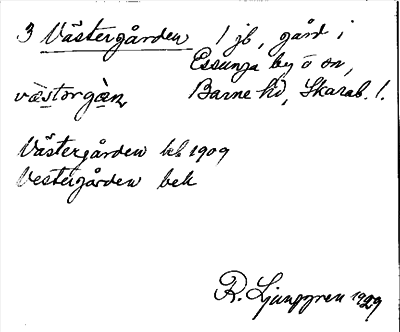 3 Västergården 1 jb, gård i
Essunga by o sn,
västorgàn Barne hd, Skarab. l.
Västergården kb 1909
Vestergården bek
R. Ljunggren 1929